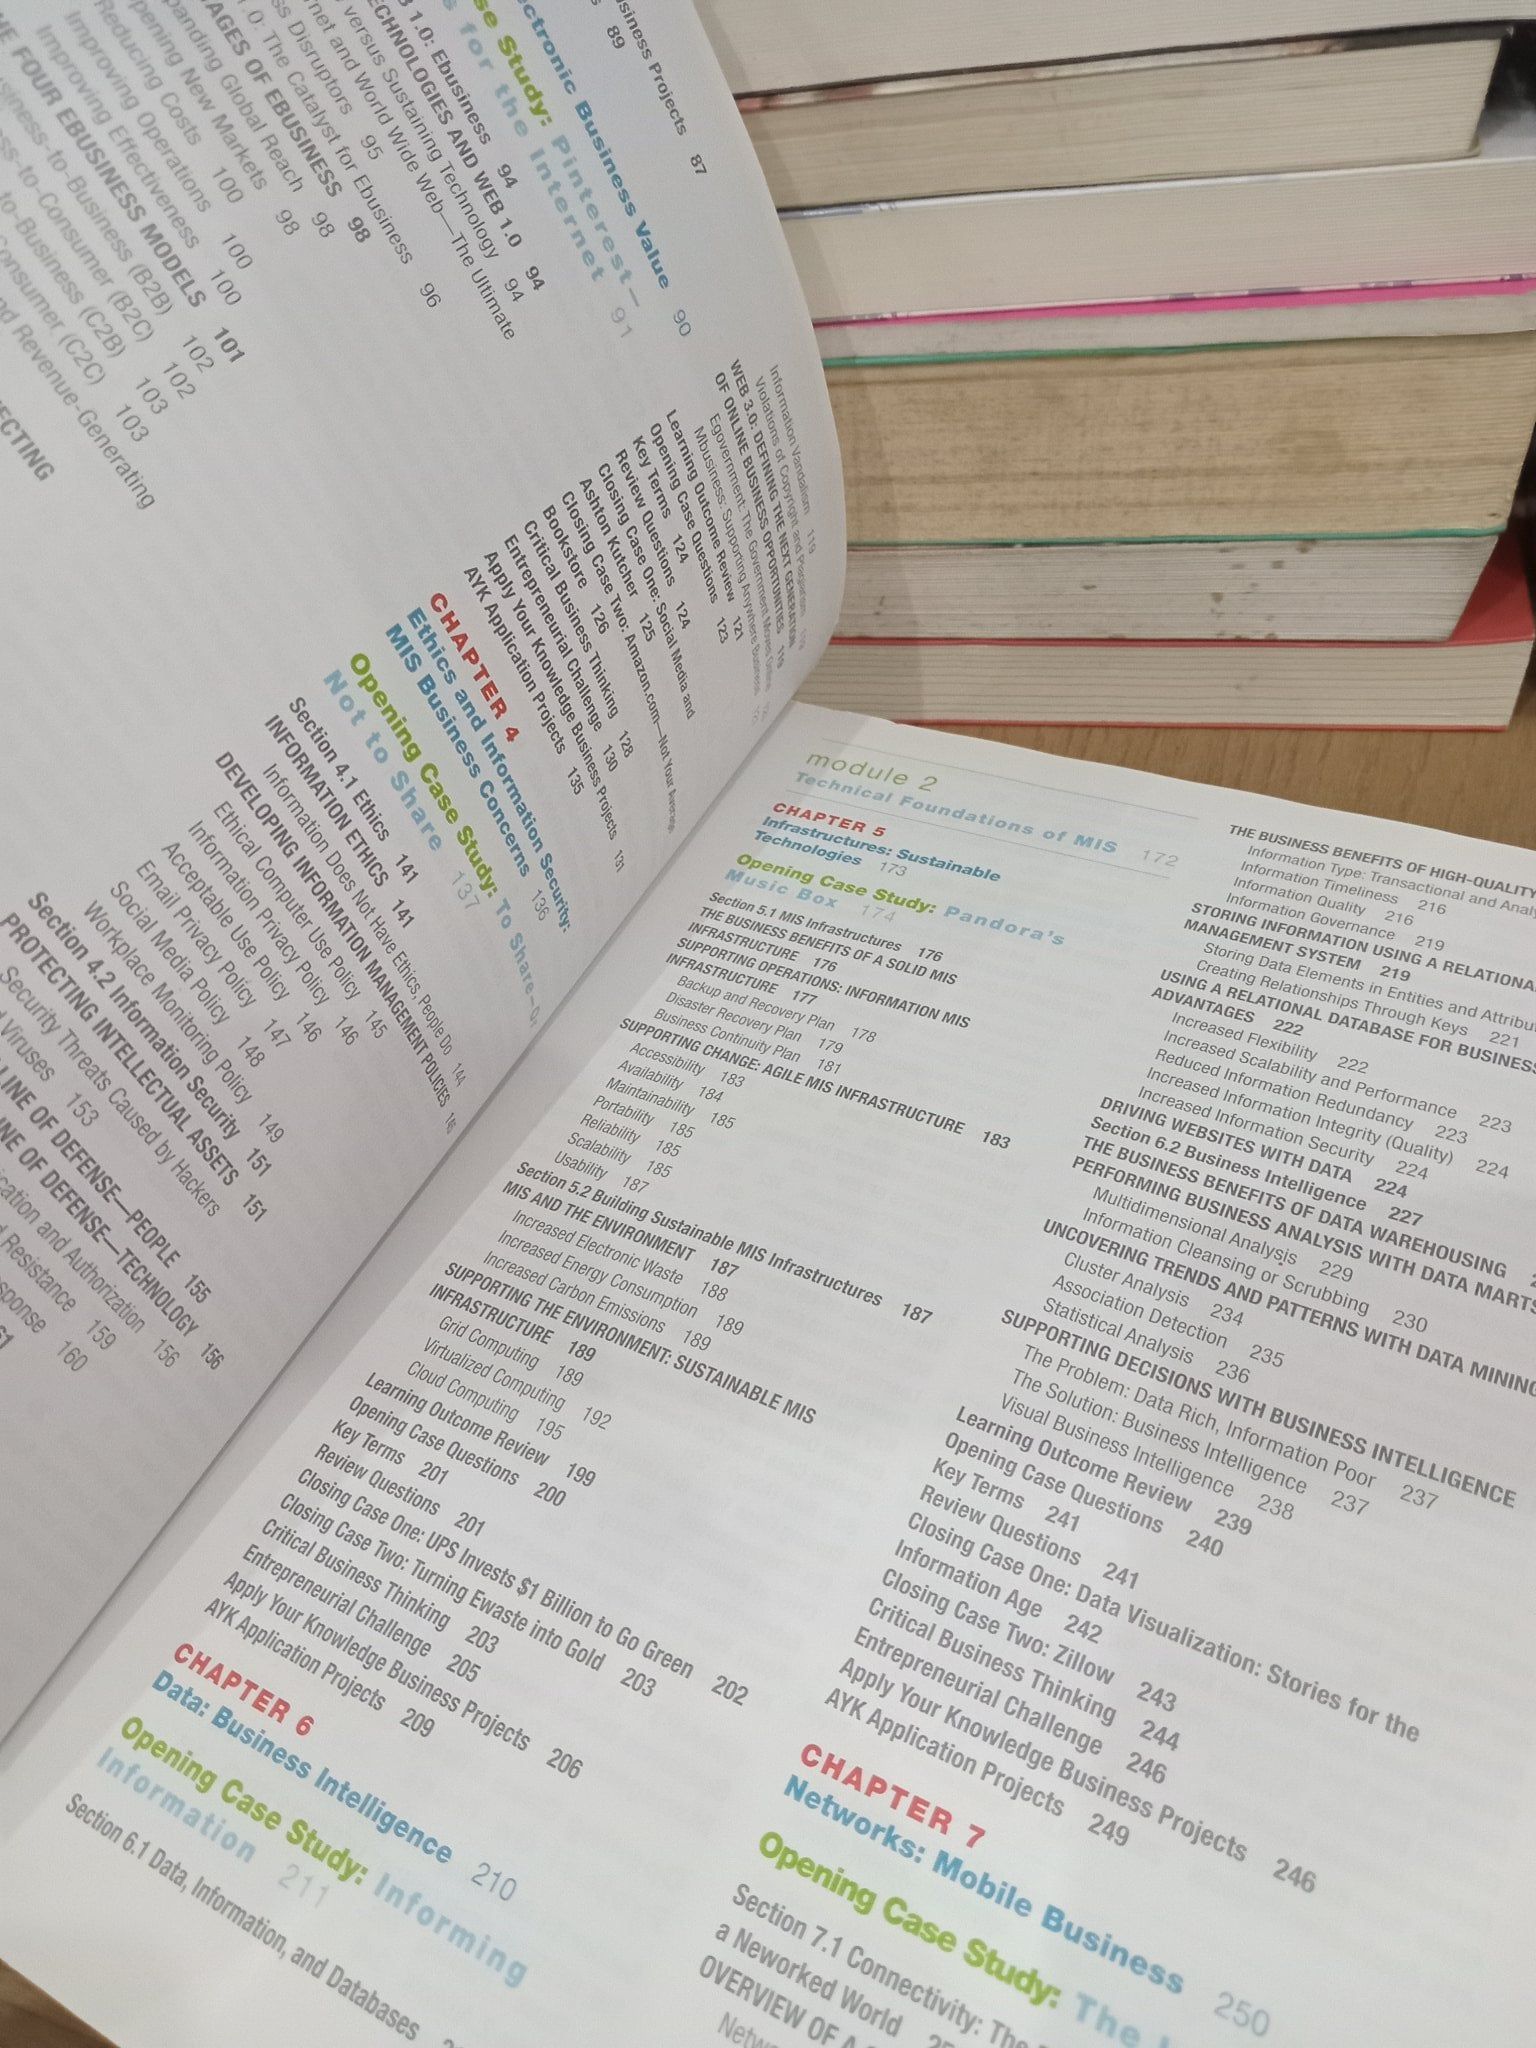 Business Projects 87
Electronic Business Value 90
Study: Pinterest—
for the Internet 91
1.0: Ebusiness 94
TECHNOLOGIES AND WEB 1.0 94
versus Sustaining Technology 94
and World Wide Web—The Ultimate
Disruptors 95
1.0: The Catalyst for Ebusiness 96
OF EBUSINESS 98
Global Reach 98
New Markets 98
Reducing Costs 100
Improving Operations 100
Improving Effectiveness 100
FOUR EBUSINESS MODELS 101
(B2B) 102
-to-Consumer (B2C) 102
-to-Business (C2B) 103
(C2C) 103
Revenue-Generating
Information Vandalism 119
Violations of Copyright and Plagiarism 119
WEB 3.0: DEFINING THE NEXT GENERATION
OF ONLINE BUSINESS OPPORTUNITIES 119
Egovernment: The Government Moves Online
Mbusiness: Supporting Anywhere Business
Learning Outcome Review 121
Opening Case Questions 123
Key Terms 124
Review Questions 124
Closing Case One: Social Media and
Ashton Kutcher 125
Closing Case Two: Amazon.com—Not Your Average
Bookstore 126
Critical Business Thinking 128
Entrepreneurial Challenge 130
Apply Your Knowledge Business Projects 131
AYK Application Projects 135
CHAPTER 4
Ethics and Information Security:
MIS Business Concerns 136
Opening Case Study: To Share—Or
Not to Share 137
Section 4.1 Ethics 141
INFORMATION ETHICS 141
Information Does Not Have Ethics, People Do 144
DEVELOPING INFORMATION MANAGEMENT POLICIES
Ethical Computer Use Policy 145
Information Privacy Policy 146
Acceptable Use Policy 146
Email Privacy Policy 147
Social Media Policy 148
Workplace Monitoring Policy 149
Section 4.2 Information Security 151
PROTECTING INTELLECTUAL ASSETS 151
Security Threats Caused by Hackers
Viruses 153
LINE OF DEFENSE—PEOPLE 155
LINE OF DEFENSE—TECHNOLOGY 156
and Authorization 156
Resistance 159
160
module 2
Technical Foundations of MIS 172
CHAPTER 5
Infrastructures: Sustainable
Technologies 173
Opening Case Study: Pandora's
Music Box 174
Section 5.1 MIS Infrastructures 176
THE BUSINESS BENEFITS OF A SOLID MIS
INFRASTRUCTURE 176
SUPPORTING OPERATIONS: INFORMATION MIS
INFRASTRUCTURE 177
Backup and Recovery Plan 178
Disaster Recovery Plan 179
Business Continuity Plan 181
SUPPORTING CHANGE: AGILE MIS INFRASTRUCTURE 183
Accessibility 183
Availability 184
Maintainability 185
Portability 185
Reliability 185
Scalability 185
Usability 187
Section 5.2 Building Sustainable MIS Infrastructures 187
MIS AND THE ENVIRONMENT 187
Increased Electronic Waste 188
Increased Energy Consumption 189
Increased Carbon Emissions 189
SUPPORTING THE ENVIRONMENT: SUSTAINABLE MIS
INFRASTRUCTURE 189
Grid Computing 189
Virtualized Computing 192
Cloud Computing 195
Learning Outcome Review 199
Opening Case Questions 200
Key Terms 201
Review Questions 201
Closing Case One: UPS Invests $1 Billion to Go Green 202
Closing Case Two: Turning Ewaste into Gold 203
Critical Business Thinking 203
Entrepreneurial Challenge 205
Apply Your Knowledge Business Projects 206
AYK Application Projects 209
CHAPTER 6
Data: Business Intelligence 210
Opening Case Study: Informing
Information 211
Section 6.1 Data, Information, and Databases
THE BUSINESS BENEFITS OF HIGH-QUALITY
Information Type: Transactional and
Information Timeliness 216
Information Quality 216
Information Governance 219
STORING INFORMATION USING A
MANAGEMENT SYSTEM 219
Storing Data Elements in Entities and
Creating Relationships Through Keys 221
USING A RELATIONAL DATABASE FOR BUSINESS
ADVANTAGES 222
Increased Flexibility 222
Increased Scalability and Performance 223
Reduced Information Redundancy 223
Increased Information Integrity (Quality) 224
Increased Information Security 224
DRIVING WEBSITES WITH DATA 224
Section 6.2 Business Intelligence 227
THE BUSINESS BENEFITS OF DATA WAREHOUSING
PERFORMING BUSINESS ANALYSIS WITH DATA MARTS
Multidimensional Analysis 229
Information Cleansing or Scrubbing 230
UNCOVERING TRENDS AND PATTERNS WITH DATA MINING
Cluster Analysis 234
Association Detection 235
Statistical Analysis 236
SUPPORTING DECISIONS WITH BUSINESS INTELLIGENCE
The Problem: Data Rich, Information Poor 237
The Solution: Business Intelligence 237
Visual Business Intelligence 238
Learning Outcome Review 239
Opening Case Questions 240
Key Terms 241
Review Questions 241
Closing Case One: Data Visualization: Stories for the
Information Age 242
Closing Case Two: Zillow 243
Critical Business Thinking 244
Entrepreneurial Challenge 246
Apply Your Knowledge Business Projects 246
AYK Application Projects 249
CHAPTER 7
Networks: Mobile Business 250
Opening Case Study: The
Section 7.1 Connectivity: The
a Neworked World
OVERVIEW OF A